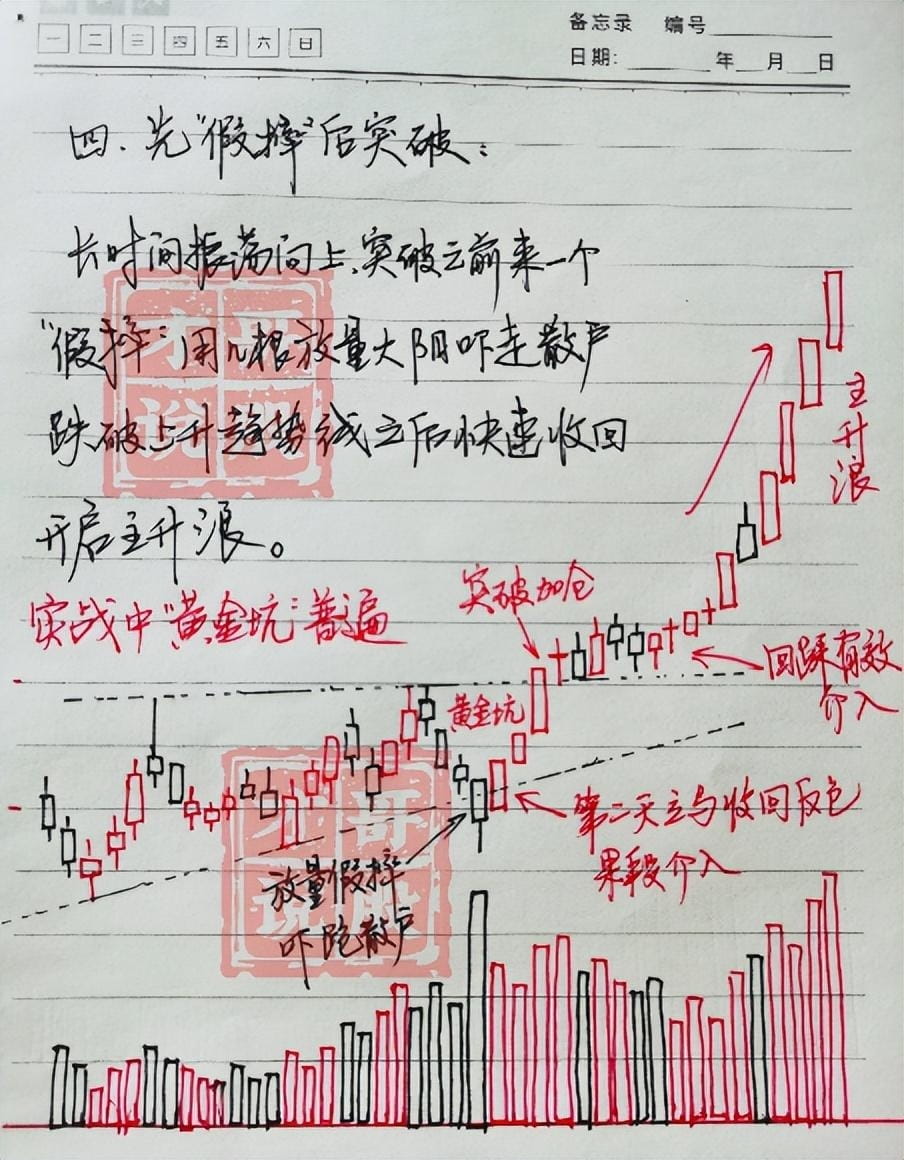 一 二 三 四 五 六 日
备忘录 编号
日期: 年 月 日
四、先“假摔”后突破：
长时间振荡向上，突破之前来一个
“假摔”用几根放量大阴吓走散户
跌破上升趋势线之后快速收回
开启主升浪。
实战中“黄金坑”普遍
突破加仓
主升浪
回踩有效
介入
黄金坑
第二天立马收回反包
果断介入
放量假摔
吓跑散户